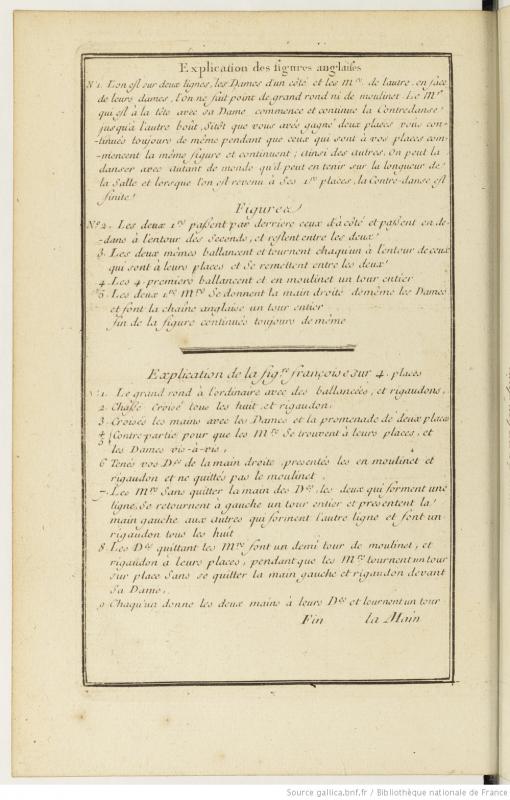 Explication des figures anglaises
N.º 1. L'on est sur deux lignes, les Dames d'un côté et les M.rs de l'autre en face
de leurs dames, l'on ne fait point de grand rond ni de moulinet. Le M.r
qui est à la tête avec sa Dame commence et continue la Contredanse
jusqu'à l'autre boût, Sitôt que vous avés gagné deux places vous con-
-tinués toujours de même pendant que ceux qui sont à vos places com-
-mencent la même figure et continuent; ainsi des autres. On peut la
danser avec autant de monde qu'il peut en tenir sur la longueur de
la Salle et lorsque l'on est revenu à Ses 1.res places, la Contre-danse est
finite
Figures
N.º 2. Les deux 1.ers passent par derriere ceux d'à côté et passent en de-
-dans à l'entour des Seconds, et restent entre les deux
3. Les deux mêmes ballancent et tournent chaqu'un à l'entour de ceux
qui sont à leurs places et Se remettent entre les deux
4. Les 4. premiers ballancent et en moulinet un tour entier
5. Les deux 1.ers M.rs Se donnent la main droite de même les Dames
et font la chaîne anglaise un tour entier
fin de la figure continués toujours de même
Explication de la fig.re françoise sur 4. places
N.º 1. Le grand rond à l'ordinaire avec des ballancées, et rigaudons,
2. Chassé Croisé tous les huit et rigaudon,
3. Croisés les mains avec les Dames et la promenade de deux places
4 5 Contre-partie pour que les M.rs Se trouvent à leurs places, et
les Dames vis-à-vis,
6 Tenés vos D.es de la main droite, presentés les en moulinet et
rigaudon et ne quittés pas le moulinet,
7. Les M.rs Sans quitter la main des D.es, les deux qui forment une
ligne, Se retournent à gauche un tour entier et presentent la
main gauche aux autres qui forment l'autre ligne et font un
rigaudon tous les huit
8. Les D.es quittant les M.rs font un demi tour de moulinet, et
rigaudon à leurs places, pendant que les M.rs tournent un tour
sur place Sans se quitter la main gauche et rigaudon devant
Sa Dame,
9 Chaqu'un donne les deux mains à leurs D.es et tournent un tour
Fin la Main
Source gallica.bnf.fr / Bibliothèque nationale de France